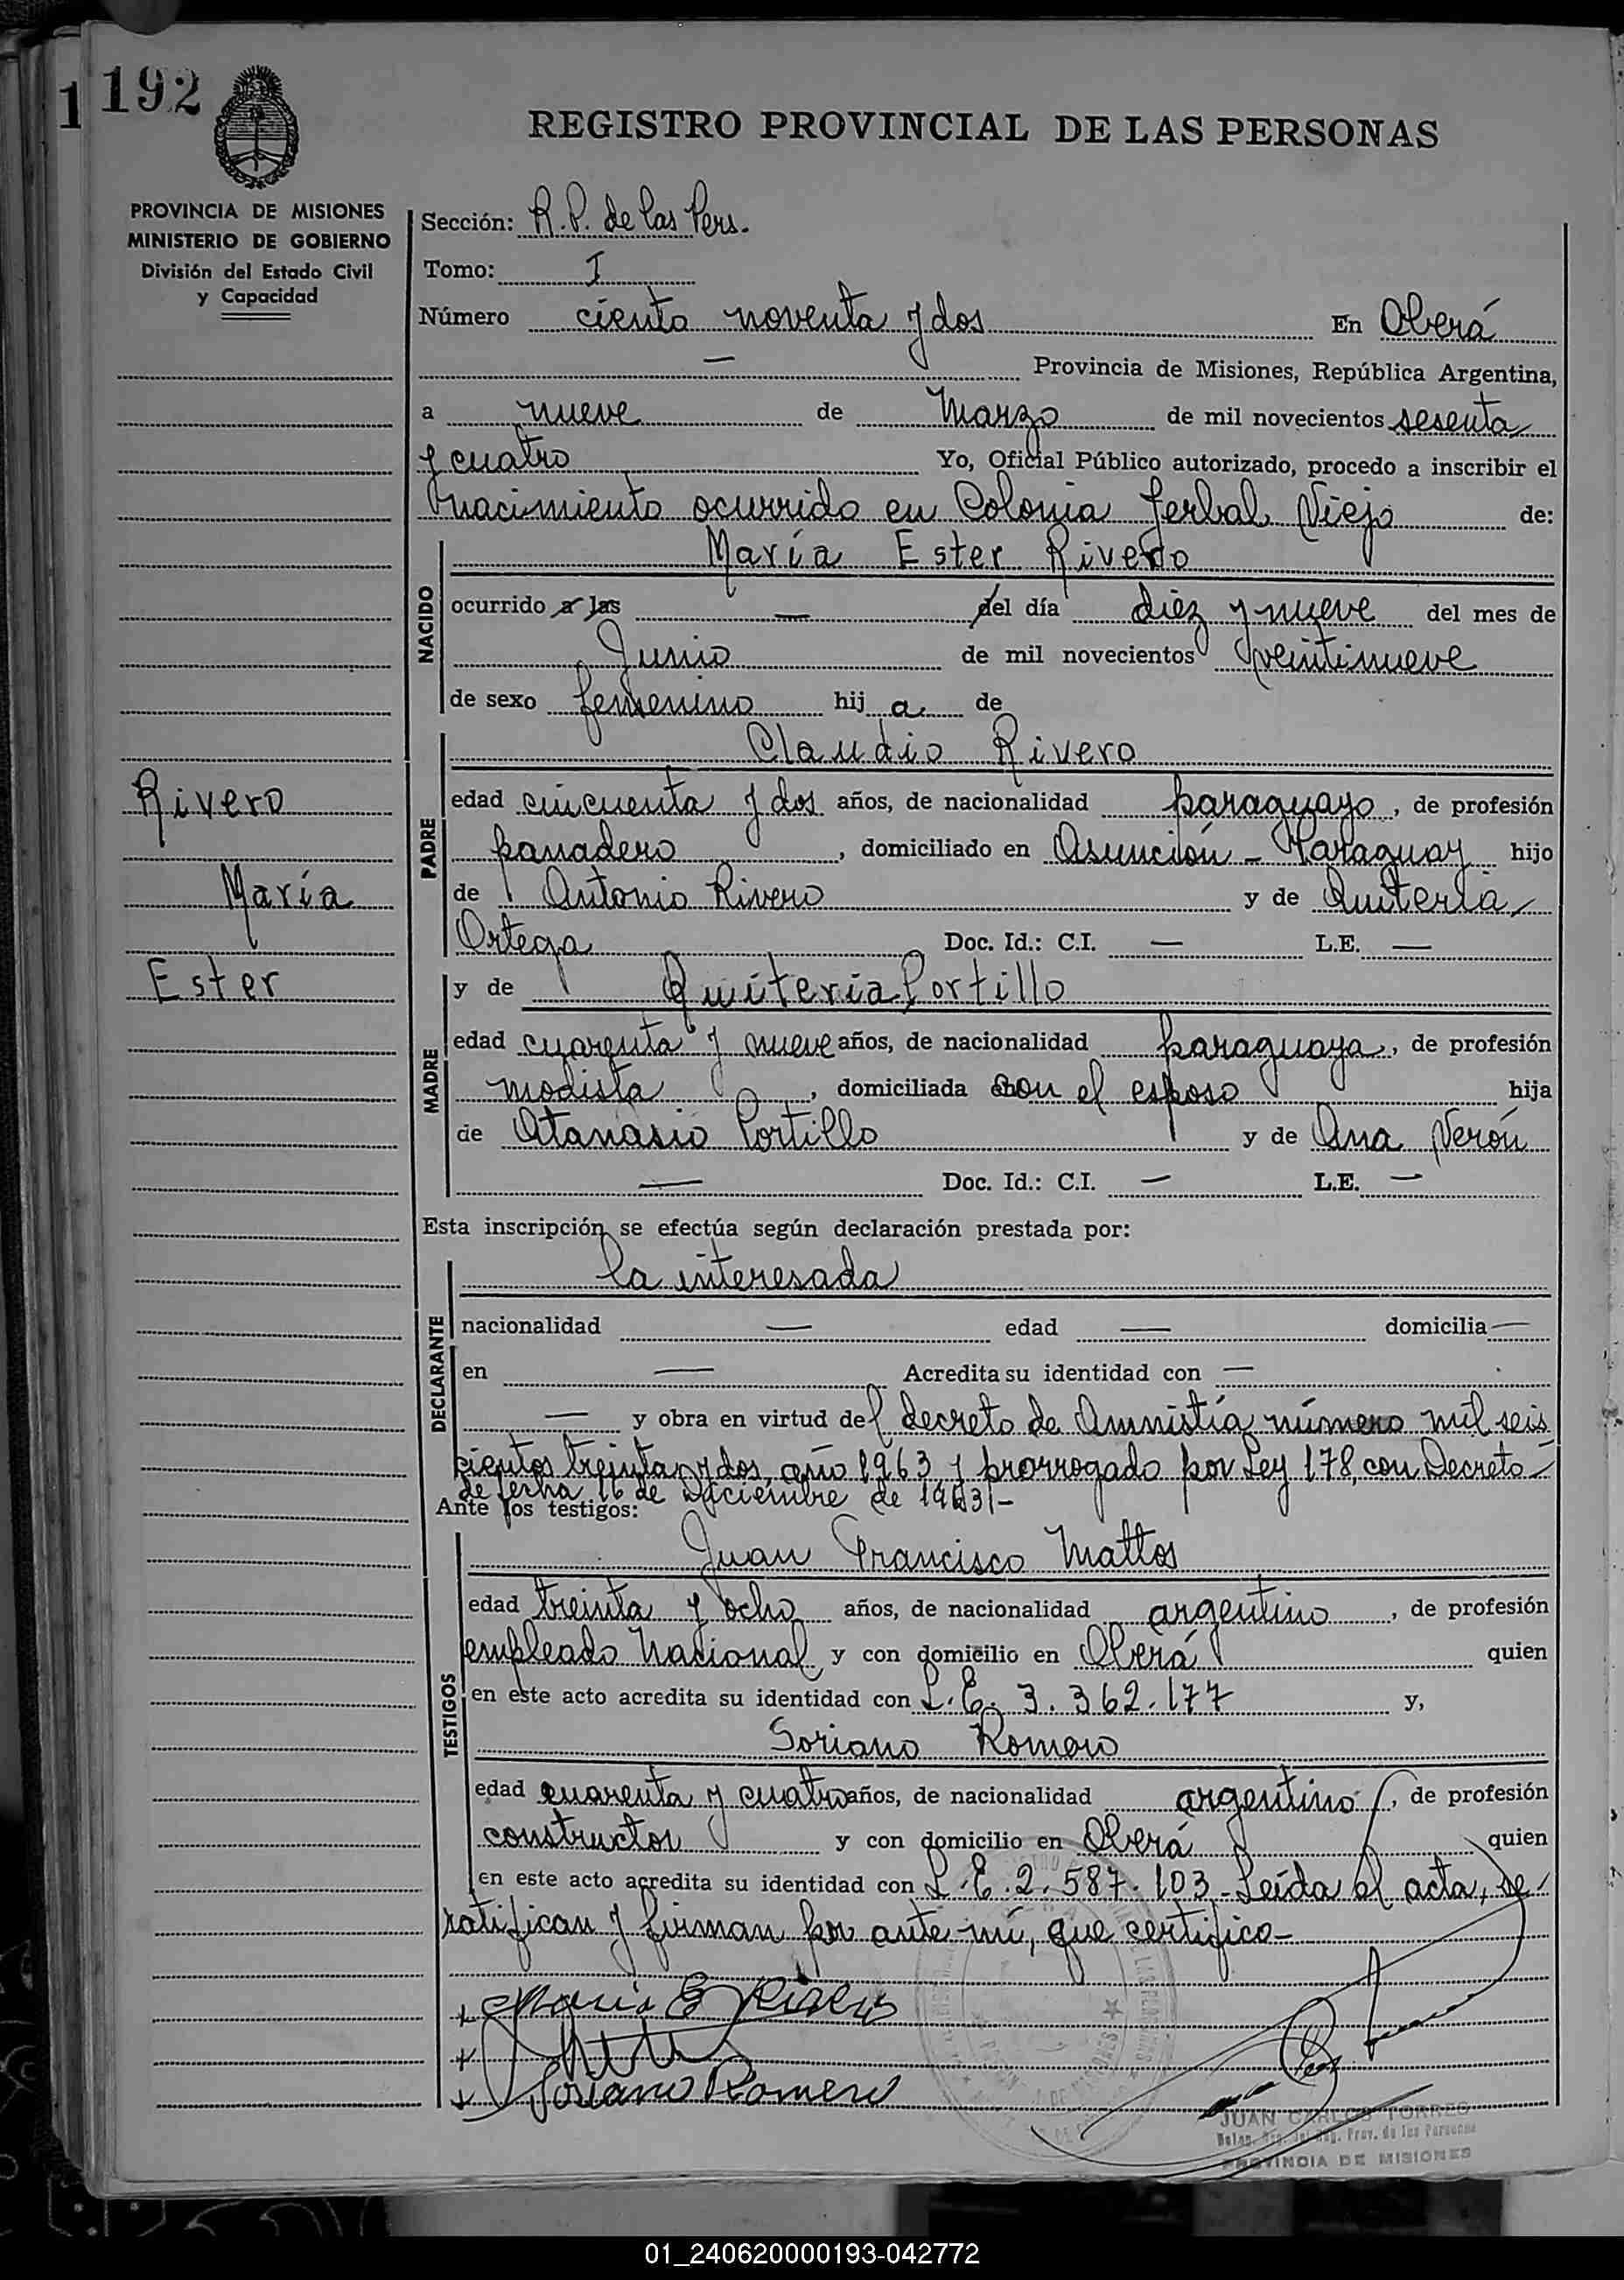 1 192
REGISTRO PROVINCIAL DE LAS PERSONAS
PROVINCIA DE MISIONES
MINISTERIO DE GOBIERNO
División del Estado Civil
y Capacidad
Sección: R.P. de las Pers.
Tomo: I
Número ciento noventa y dos En Oberá
— Provincia de Misiones, República Argentina,
a nueve de Marzo de mil novecientos sesenta
y cuatro Yo, Oficial Público autorizado, procedo a inscribir el
nacimiento ocurrido en Colonia Yerbal Viejo de:
NACIDO
María Ester Rivero
ocurrido a las — del día diez y nueve del mes de
Junio de mil novecientos veintinueve
de sexo femenino hij a de
PADRE
Claudio Rivero
edad cincuenta y dos años, de nacionalidad paraguayo, de profesión
panadero, domiciliado en Asunción - Paraguay hijo
de Antonio Rivero y de Quiteria
Ortega Doc. Id.: C.I. — L.E. —
Rivero
María
Ester
MADRE
y de Quiteria Portillo
edad cuarenta y nueve años, de nacionalidad paraguaya, de profesión
modista, domiciliada con el esposo hija
de Atanasio Portillo y de Ana Verón
— Doc. Id.: C.I. — L.E. —
Esta inscripción se efectúa según declaración prestada por:
DECLARANTE
la interesada
nacionalidad — edad — domicilia —
en — Acredita su identidad con —
— y obra en virtud del decreto de Amnistía número mil seis
cientos treinta y dos, año 1963 y prorrogado por Ley 178, con Decreto
de fecha 16 de Diciembre de 1963.-
Ante los testigos:
TESTIGOS
Juan Francisco Mattos
edad treinta y ocho años, de nacionalidad argentino, de profesión
empleado Nacional y con domicilio en Oberá quien
en este acto acredita su identidad con L.E. 3.362.177 y,
Soriano Romero
edad cuarenta y cuatro años, de nacionalidad argentino, de profesión
constructor y con domicilio en Oberá quien
en este acto acredita su identidad con L.E. 2.587.103.- Leída el acta, se
ratifican y firman por ante mí, que certifico-
+ Maria E Rivero
+
+ Soriano Romero
JUAN CARLOS TORRES
Prov. de las Personas
PROVINCIA DE MISIONES
01_240620000193-042772